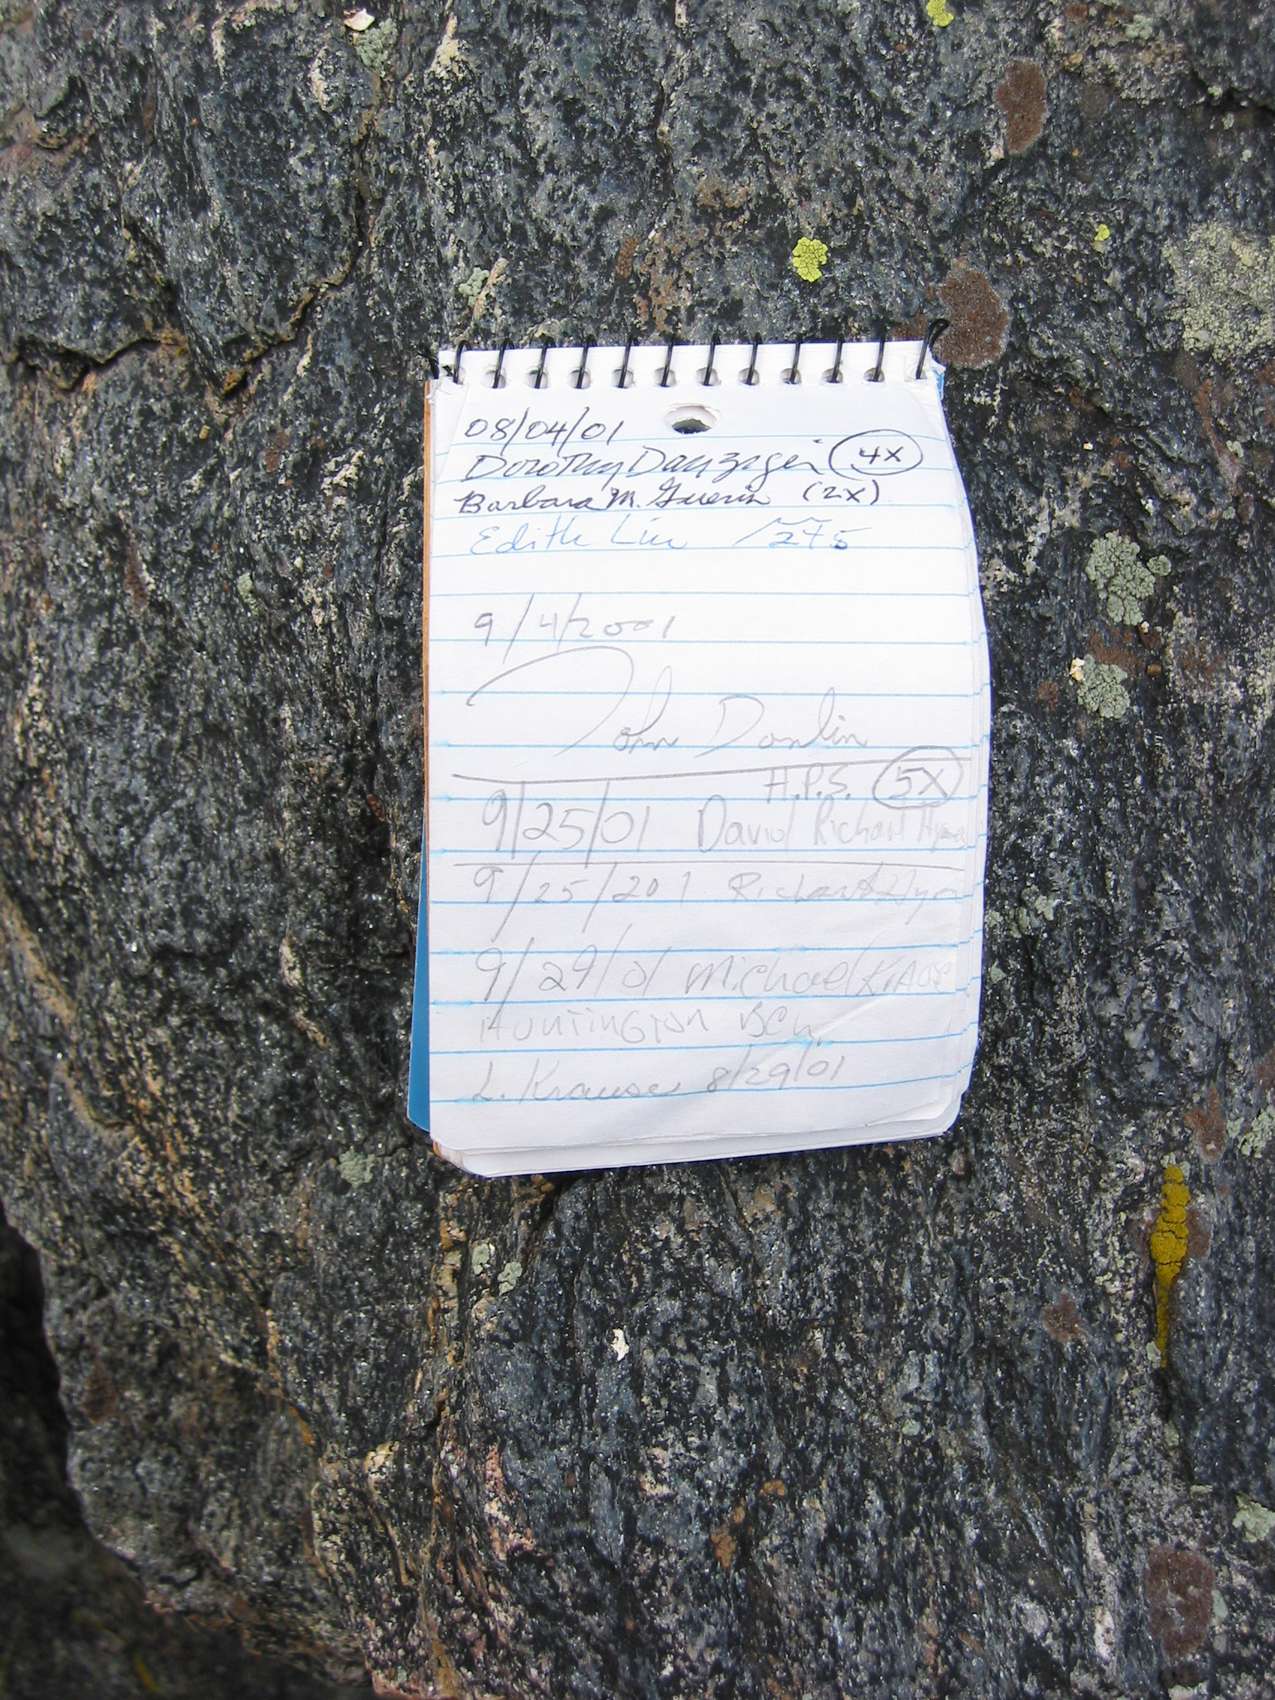 08/04/01
Dorothy Danziger 4X
Barbara M. Guerin (2X)
Edith Liu 275
9/4/2001
John Donlin
H.P.S. 5X
9/25/01 David Richard
9/25/201 Richard
9/29/01 Michael Krause
Huntington Bch
L. Krause 8/29/01